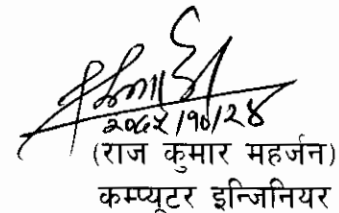 २०८२/१०/२४
(राज कुमार महर्जन)
कम्प्यूटर इन्जिनियर